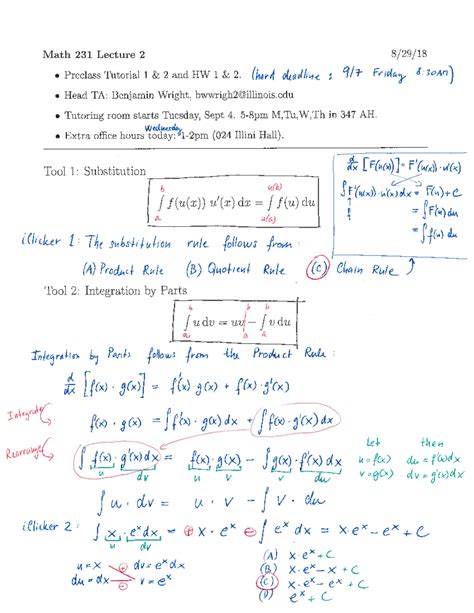 Math 231 Lecture 2 8/29/18
• Preclass Tutorial 1 & 2 and HW 1 & 2. (hard deadline : 9/7 Friday 8:30AM)
• Head TA: Benjamin Wright, bwwrigh2@illinois.edu
• Tutoring room starts Tuesday, Sept 4. 5-8pm M,Tu,W,Th in 347 AH.
Wednesday
• Extra office hours today: 1-2pm (024 Illini Hall).
Tool 1: Substitution
∫_a^b f(u(x)) u'(x) dx = ∫_{u(a)}^{u(b)} f(u) du
d/dx [F(u(x))] = F'(u(x)) · u'(x)
∫ F'(u(x)) · u'(x) dx = F(u) + C
f = ∫ F'(u) du
= ∫ f(u) du
iClicker 1: The substitution rule follows from:
(A) Product Rule (B) Quotient Rule (C) Chain Rule
Tool 2: Integration by Parts
∫_a^b u dv = uv |_a^b − ∫_a^b v du
Integration by Parts follows from the Product Rule:
d/dx [f(x) · g(x)] = f'(x) · g(x) + f(x) · g'(x)
Integrate
f(x) · g(x) = ∫ f'(x) · g(x) dx + ∫ f(x) · g'(x) dx
Rearrange
∫ f(x) · g'(x) dx = f(x) · g(x) − ∫ g(x) · f'(x) dx
u dv u v v du
Let then
u = f(x) du = f'(x) dx
v = g(x) dv = g'(x) dx
∫ u · dv = u · v − ∫ v · du
iClicker 2: ∫ x · e^x dx = ⊕ x · e^x ⊖ ∫ e^x dx = x · e^x − e^x + C
u dv
u = x ⊕ dv = e^x dx
du = dx ⊖ v = e^x
(A) x · e^x + C
(B) x · e^x − x + C
(C) x · e^x − e^x + C
(D) e^x + C